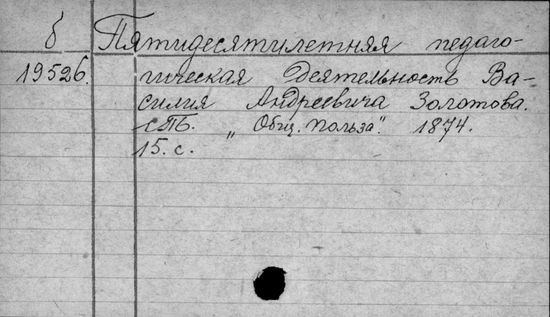 б Пятидесятилетняя педаго-
19526. гическая Деятельность Ва-
силия Андреевича Золотова.
СПб. „Общ. Польза". 1874.
15. с.